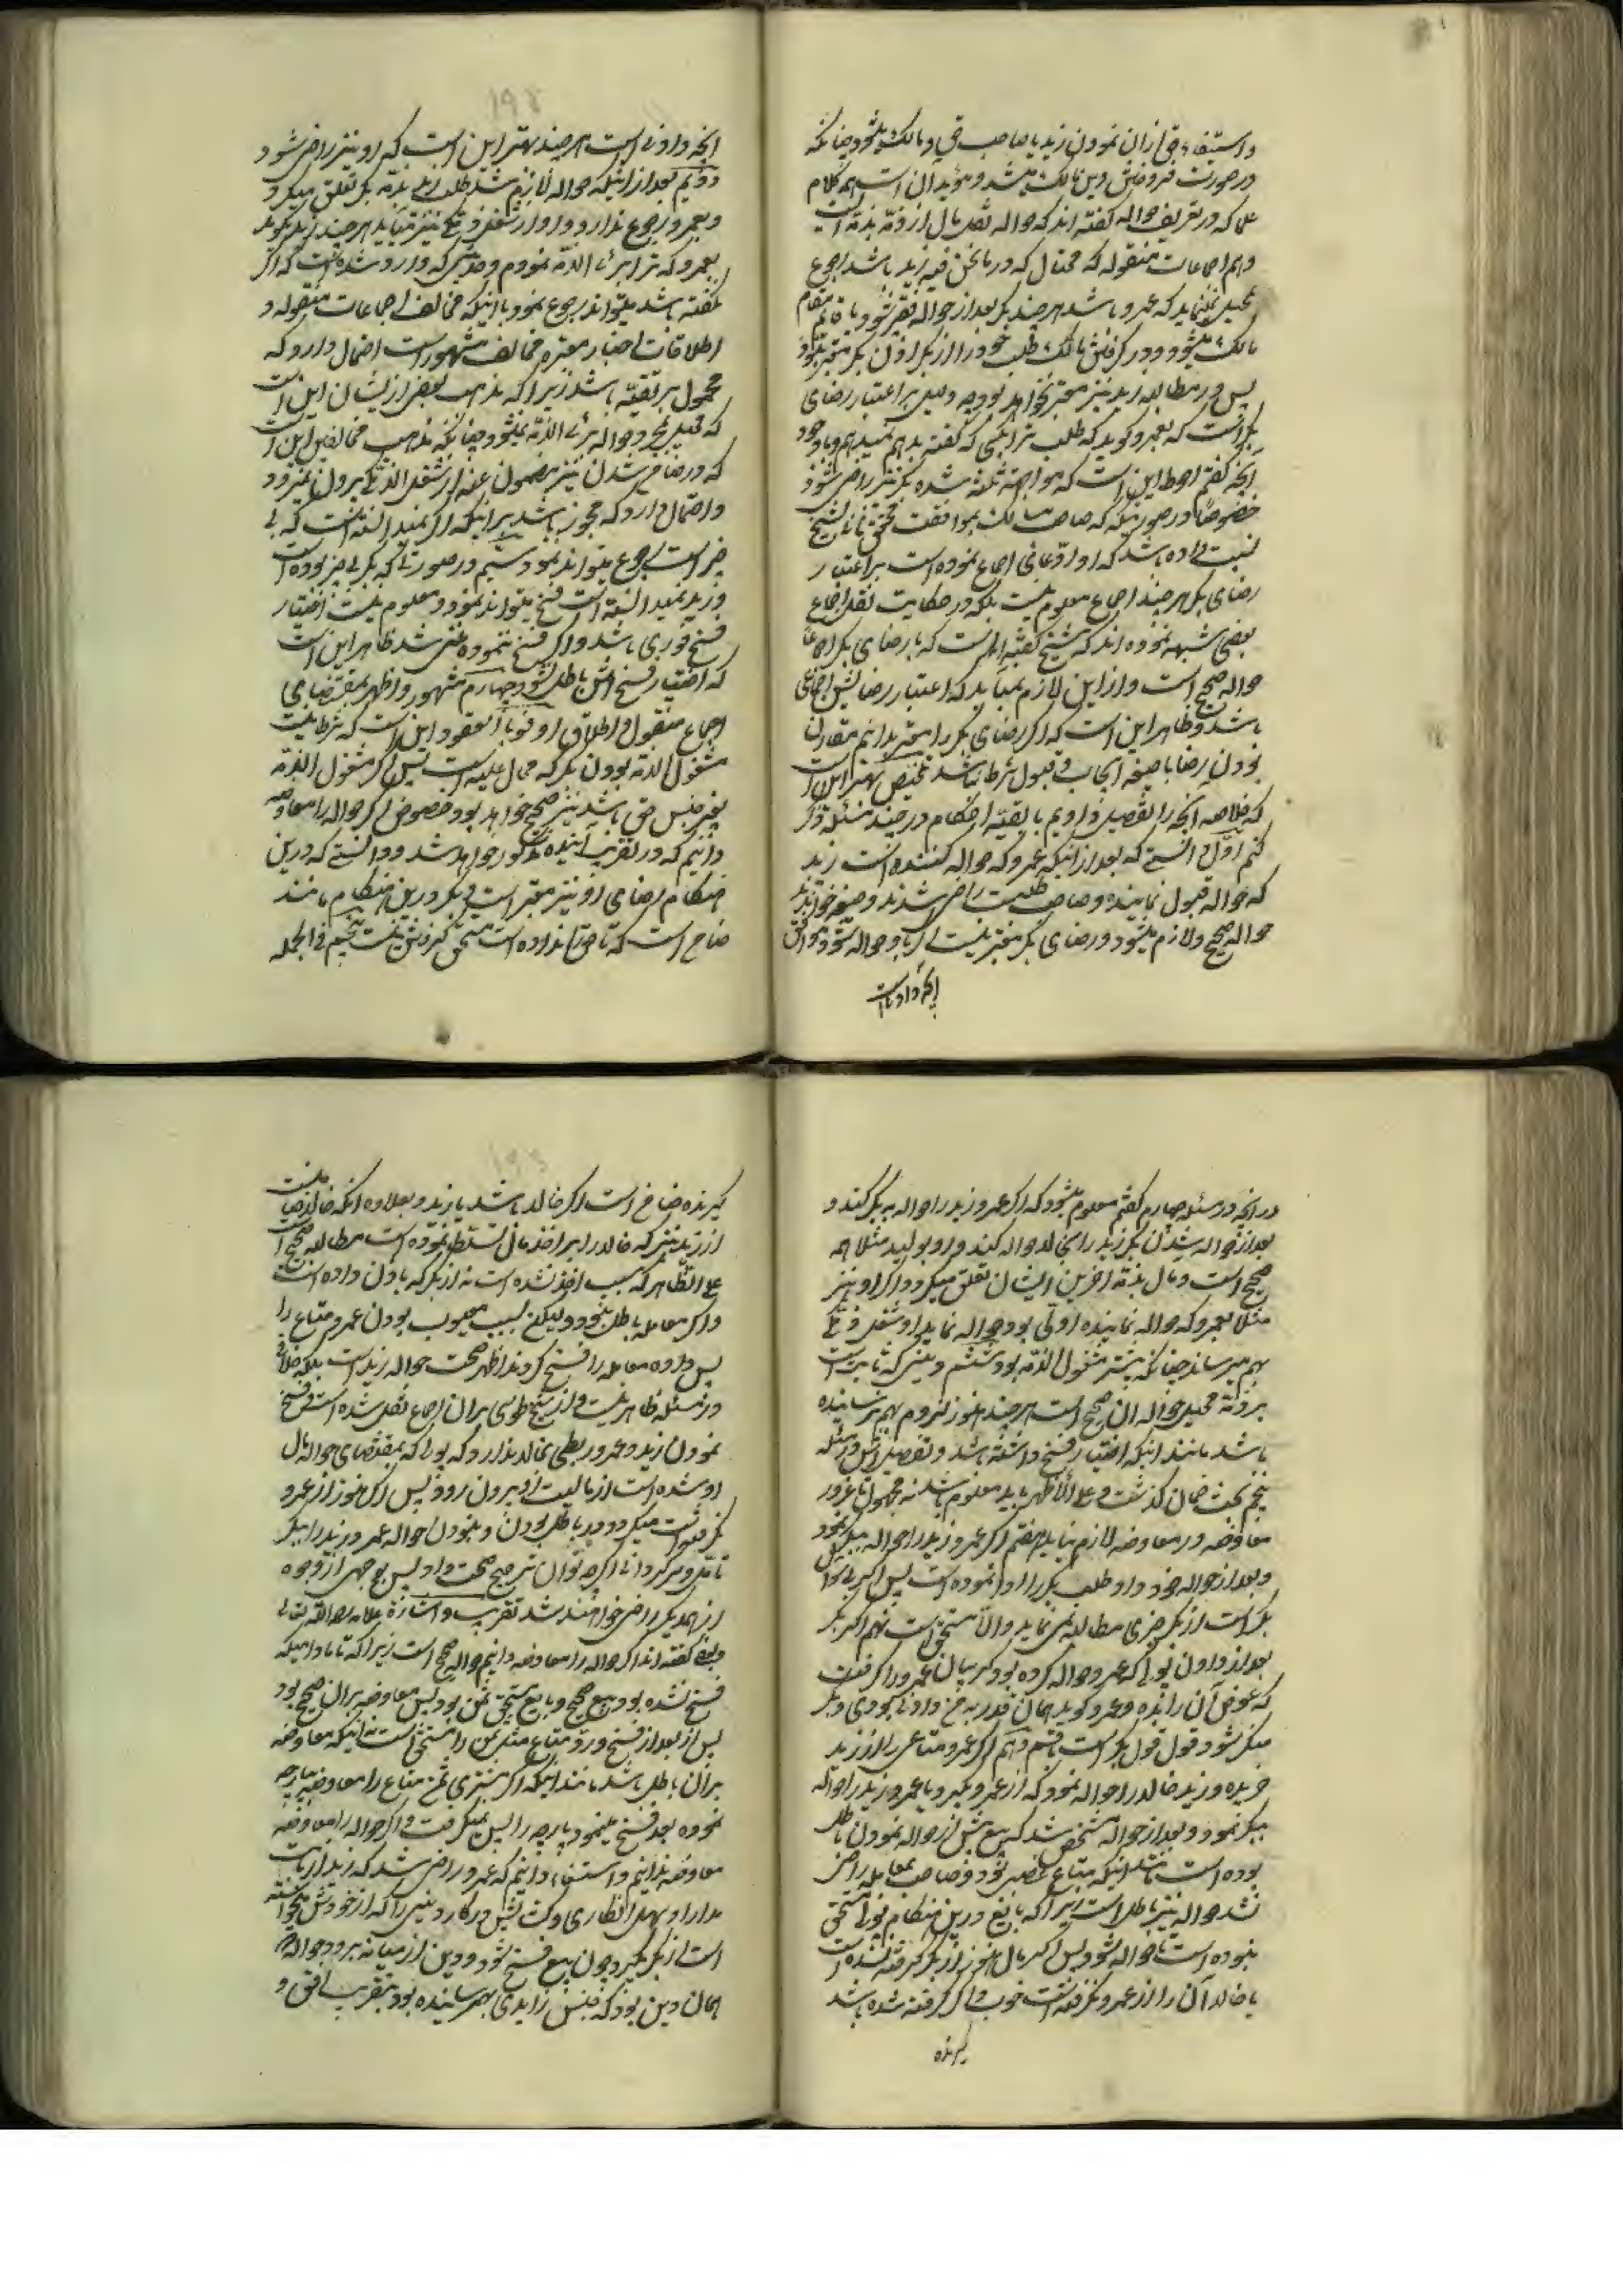 و استیفاء حق از آن نمودن زید یا صاحب حق و مالک میشود چنانکه
در صورت فروختن دین مالک میشد و مؤید آن است همه کلام
علما که در تعریف حواله گفته اند که حواله نقل مال از ذمه بذمه است
و هم اجماعات منقوله که محتال که در ما نحن فیه زید باشد رجوع
بمحیل نمینماید که عمرو باشد هر چند بکر بعد از حواله فقیر شود و یا قائم مقام
مالک میشود و در گرفتن مالک طلب خود را از بکر اذن بکر معتبر نبود
پس در مطالبه زید نیز معتبر نخواهد بود چه دلیل بر اعتبار رضای
بکر است که بعمرو گوید که طلب ترا بکسی که گفته بدهم نمیدهم و با وجود
آنچه گفتم احوط این است که مواجهه ثلثه شده بکر نیز راضی شود
خصوصا در صورتیکه که صاحب مسالک بموافقت محقق ثانی بشیخ
نسبت داده باشد که او ادعای اجماع نموده است بر اعتبار
رضای بکر هر چند اجماع معلوم نیست بلکه در حکایت نقل اجماع
بعضی شبهه نموده اند که شیخ گفته است که با رضای بکر اجماعا
حواله صحیح است و از این لازم نمیآید که اعتبار رضایش اجماعی
باشد و ظاهر این است که اگر رضای بکر را معتبر بدانیم مقارن
بودن رضا با صیغه ایجاب و قبول شرط نباشد تلخیص بهتر این است
که خلاصه آنچه را بتفصیل دادیم با بقیه احکام در چند مسئله ذکر
کنم اول دانستی که بعد از آنکه عمرو که حواله کننده است زید
که حواله قبول نماینده و صاحب طلبست راضی شدند و صیغه خواندند
حواله صحیح و لازم میشود و رضای بکر معتبر نیست که با و حواله شود موافق
آنچه داده است
آنچه داده است هر چند بهتر این است که او نیز راضی شود
دویم بعد از اینکه حواله لازم شد طلب زید بذمه بکر تعلق میگیرد
و بعمرو رجوع ندارد و او از شغل ذمگی نیز میآید هر چند زید نگوید
بعمرو که ترا ابرء الذمه نمودم و حدیثی که وارد شده است که اگر
نگفته باشد میتواند رجوع نمود با اینکه مخالف اجماعات منقوله و
اطلاقات اخبار معتبره مخالف مشهور است احتمال دارد که
محمول بر تقیه باشد زیرا که مذهب بعضی از ایشان این است
که محیل بمجرد حواله برئ الذمه نمیشود چنانکه مذهب مخالفین این است
که در ضامن شدن نیز مضمون عنه از شغل الذمگی بیرون نمیرود
و احتمال دارد که محجوز باشد بر اینکه اگر نمیدانسته است که بی
چیز است رجوع میتواند نمود سیم در صورتی که بکر بی چیز بوده است
و زید نمیدانسته است فسخ میتواند نمود و معلوم نیست اختیار
فسخ فوری باشد و اگر فسخ ننموده غنی شد ظاهر این است
که اختیار فسخ اش باطل نشود چهارم مشهور و اظهر بمقتضای
اجماع منقول و اطلاق اوفوا بالعقود این است که شرط نیست
مشغول الذمه بودن بکر که محال علیه است پس اگر مشغول الذمه
بغیر جنس حق باشد نیز صحیح خواهد بود خصوص اگر حواله را معاوضه
دانیم که در تقریب آینده مذکور خواهد شد و دانستی که در این
هنگام رضای او نیز معتبر است و بکر در این هنگام مانند
ضامن است که تا حق را نداده است مستحق گرفتن نیست پنجم فی الجمله
از آنچه در مسئله چهارم گفتم معلوم میشود که اگر عمرو زید را حواله به بکر کند و
بعد از حواله شدن بکر زید را بخالد حواله کند و او بولید مثلا همه
صحیح است و مال بذمه آخرین ایشان تعلق میگیرد و اگر او نیز
مثلا بعمرو که حواله نماینده اولی بود حواله نماید او شغل ذمگی
بهم میرساند چنانکه پیشتر مشغول الذمه بود ششم دینی که ثابت است
بر ذمه محیل حواله آن صحیح است هر چند هنوز لزوم بهم نرسانیده
باشد مانند اینکه اختیار فسخ داشته باشد و تفصیل اش در مسئله
پنجم بحث ضمان گذشت و علی الاظهر باید معلوم باشد نه مجهول تا غرور
معاوضه در معاوضه لازم نیاید هفتم اگر عمرو زید را حواله ببکر نمود
و بعد از حواله خود داد طلب بکر را ادا نموده است پس اگر بی خواهش
بکر است از بکر چیزی مطالبه نمی نماید و الا مستحق است نهم اگر بکر
بعد از دادن پولی که عمرو حواله کرده بود گریبان عمرو را گرفت
که عوض آن را بده و عمرو گوید همان قدر به من دادنی بودی و بکر
منکر شود قول قول بکر است با قسم دهم اگر عمرو متاعی را از زید
خریده و زید خالد را حواله نمود که از عمرو بگیرد یا عمرو زید را حواله
ببکر نمود و بعد از حواله مشخص شد که بیع پیش از حواله نمودن باطل
بوده است مثلا اینکه متاع غصبی بود و صاحب بمعامله راضی
نشد حواله نیز باطل است زیرا که بایع در این هنگام پول مستحق
نبوده است تا حواله شود پس اگر مال هنوز از بکر گرفته نشده است
یا خالد آن را از عمرو نگرفته است خوب و اگر گرفته شده باشد
گیرنده
گیرنده ضامن است اگر خالد باشد یا زید و بعلاوه آنکه خالد ضامنست
از زید نیز که خالد را بر اخذ مال تسلط نموده است مطالبه صحیح است
علی الظاهر که سبب اخذ شده است نه از بکر که باذن داده است
و اگر معامله باطل نبود و لیکن بسبب معیوب بودن عمرو متاع را
پس داده معامله را فسخ کردند اظهر صحت حواله زید است بلکه خلافی
در مسئله ظاهر نیست و از شیخ طوسی بر آن اجماع نقل شده است و فسخ
نمودن زید و عمرو ربطی بخالد ندارد که پولی که بمقتضای حواله مال
او شده است از مالیت او بیرون رود پس اگر هنوز از عمرو
نگرفته است میگیرد و در باطل بودن و نبودن حواله عمرو زید را ببکر
تأمل و سرگردانم اگر چه توان ترجیح صحت داد پس بوجهی از وجوه
از همدیگر راضی خواهند شد تقریب و اشارة علامه رحمه الله تعالی
و بعضی گفته اند اگر حواله را معاوضه دانیم حواله صحیح است زیرا که تا مادامیکه
فسخ نشده بود بیع صحیح و بایع مستحق ثمن بود پس معاوضه بر آن صحیح بود
پس از بعد از فسخ و رد متاع مثل ثمن را مستحق است نه اینکه معاوضه
بر آن باطل باشد مانند اینکه اگر مشتری ثمن متاع را معاوضه بپارچه
نموده بعد فسخ مینمود پارچه را پس نمیگرفت و اگر حواله را معاوضه
معاوضه ندانیم و استیفاء دانیم که عمرو راضی شد که زید از بابت
مدارا و مهل انتظاری و کشش در کار دینی را که از خودش میخواسته
است از بکر بگیرد چون بیع فسخ شود و دین از میانه برود حواله هم
همان دین بود که جنس زایدی بهم رسانیده بود بتقریب افق و